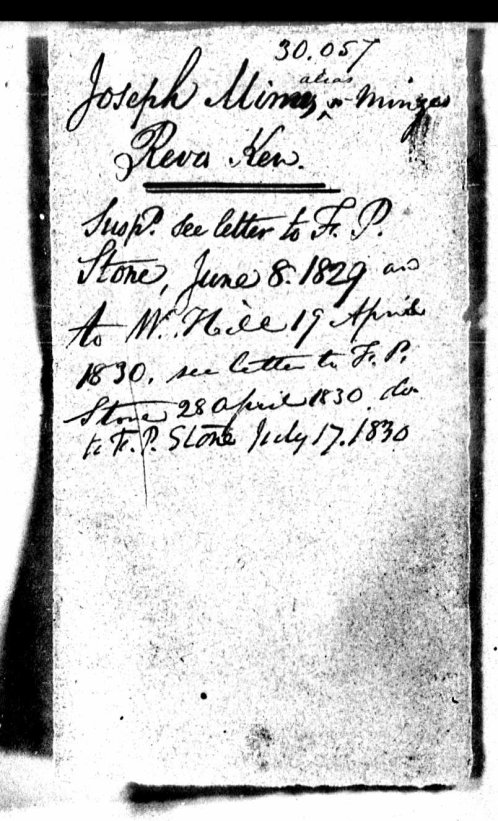 30.057
alias
Joseph Mimms, or Minges
Reva Ken.
Susp.d see letter to F. P.
Stone, June 8. 1829 and
to W. Hill 19 April
1830. see letter to F. P.
Stone 28 april 1830. do
to F. P. Stone July 17. 1830